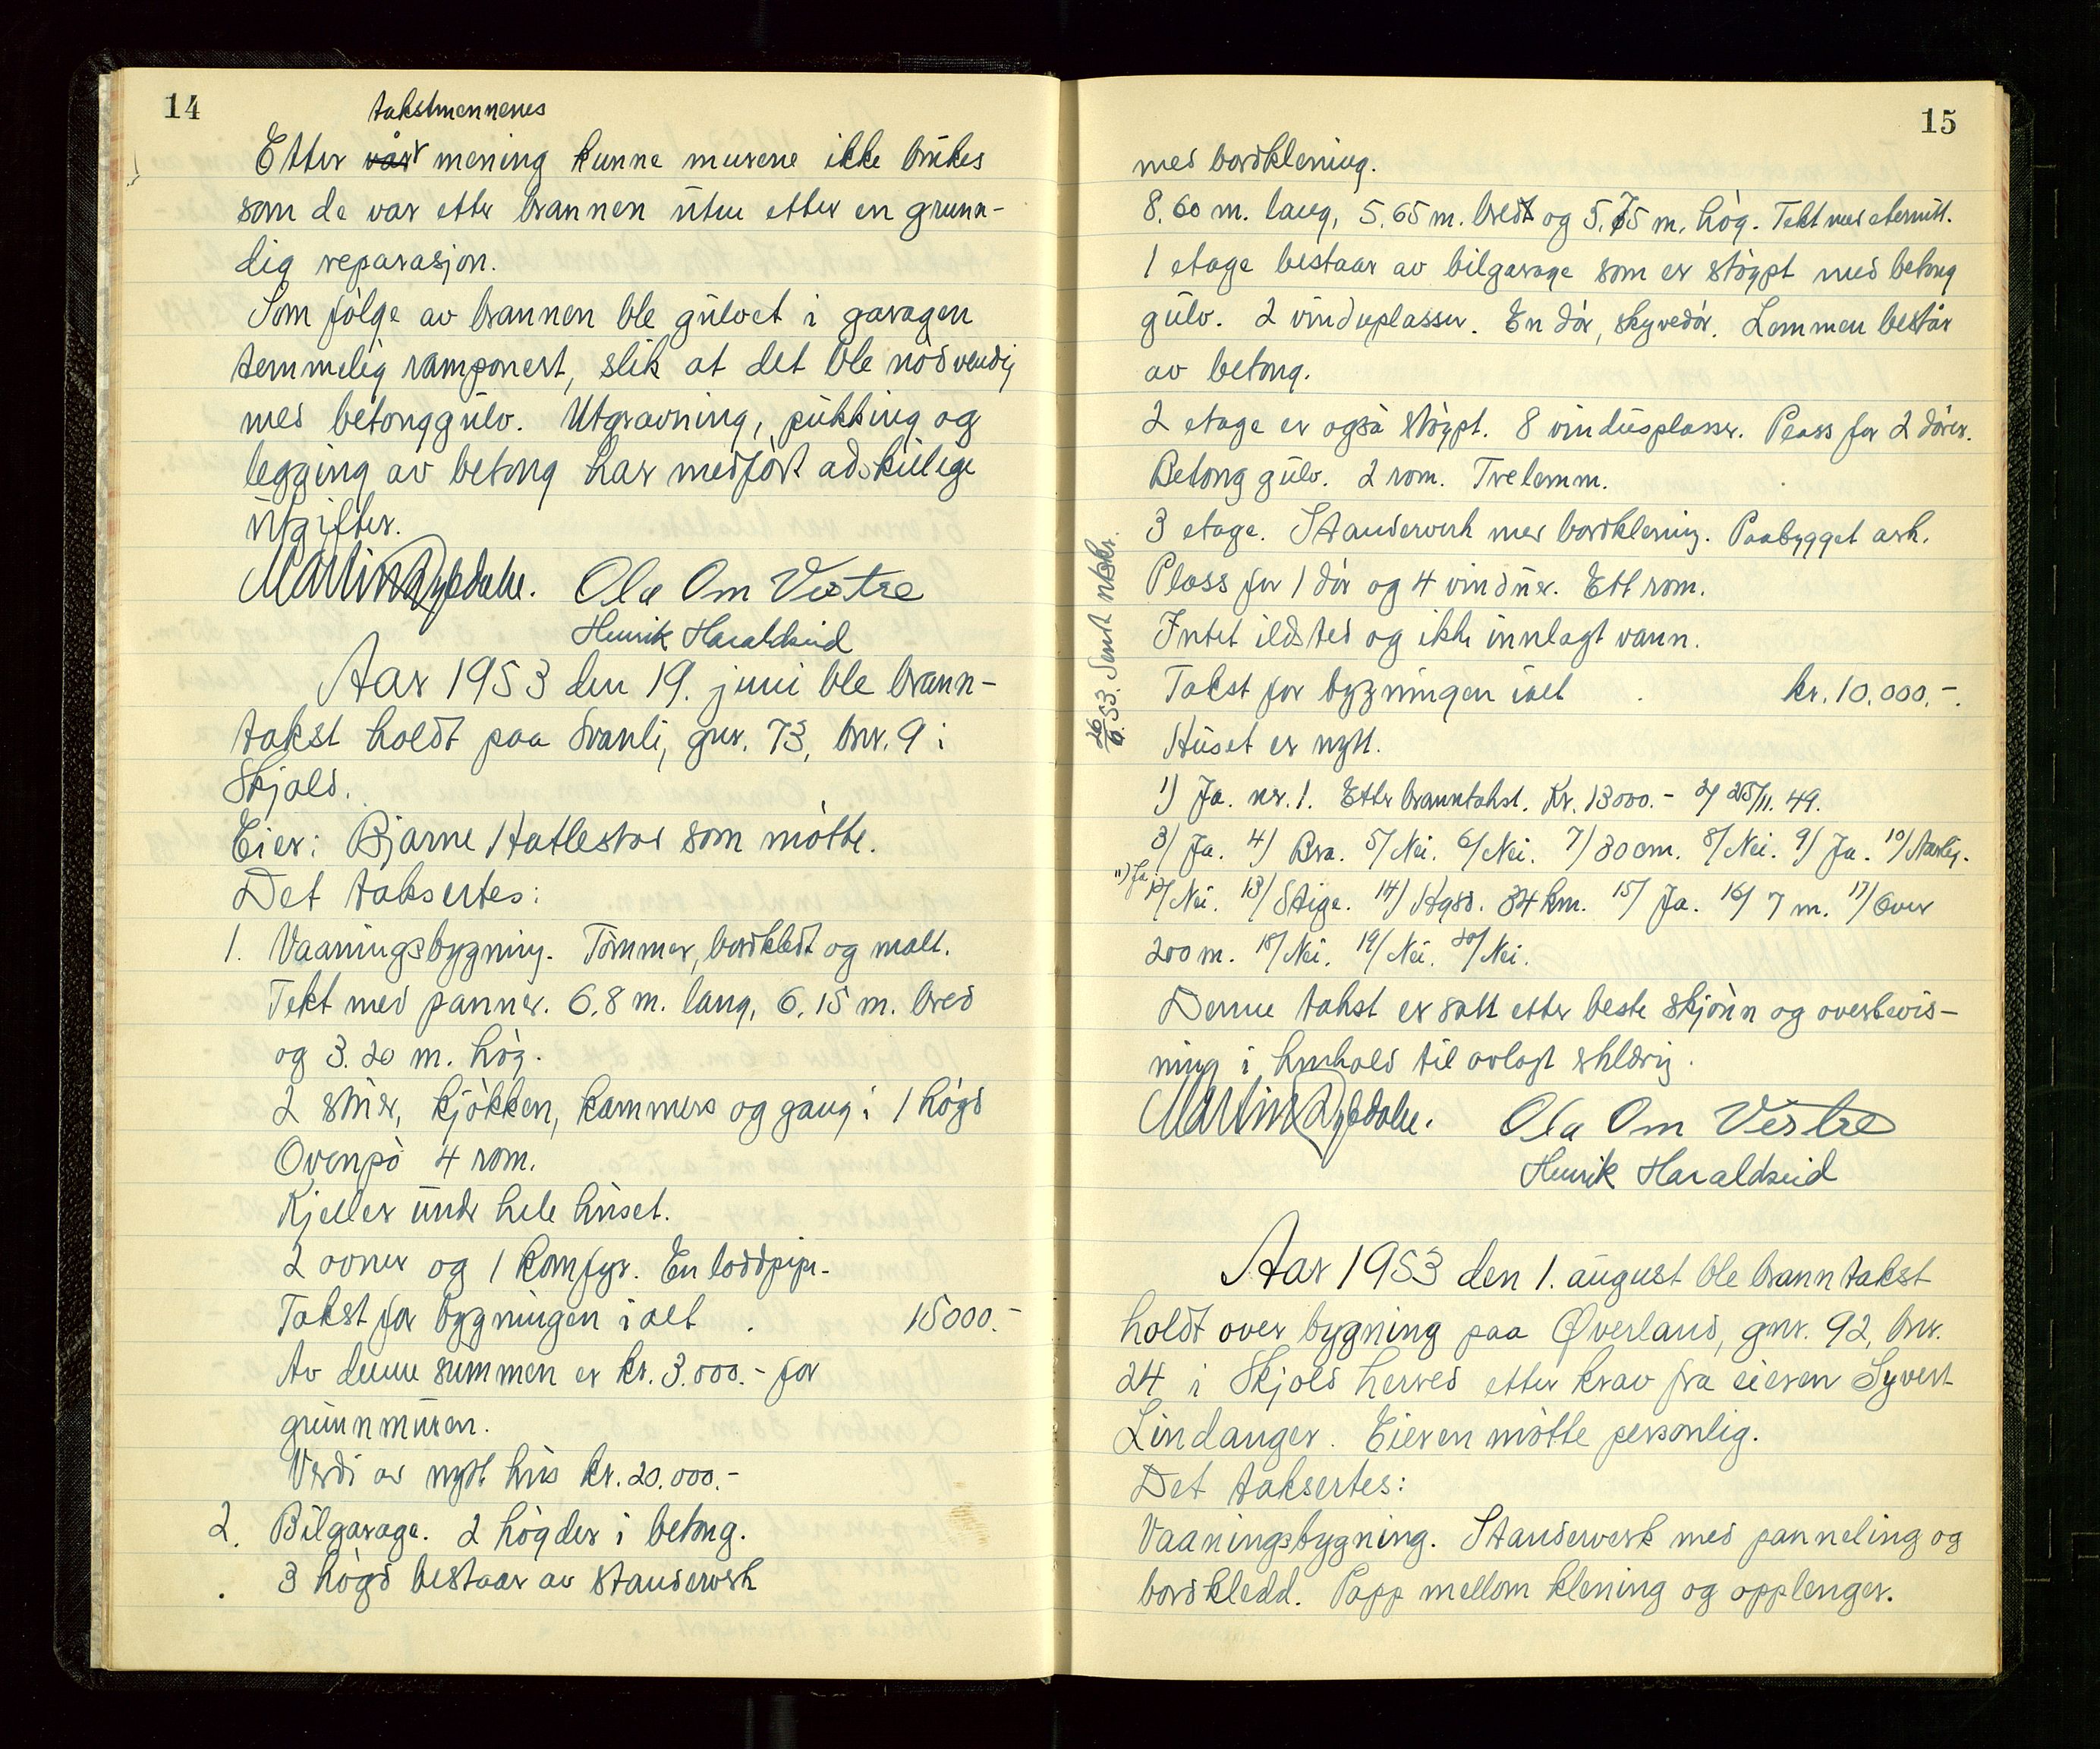 14
takstmennenes
Etter vår mening kunne murene ikke brukes
som de var etter brannen uten etter en grunn-
dig reparasjon.
Som følge av brannen ble gulvet i garagen
temmelig ramponert, slik at det ble nødvendig
med betonggulv. Utgravning, pukking og
legging av betong har medført adskillige
utgifter.
Ola Om Vestre
Henrik Haraldseid
Aar 1953 den 19. juni ble brann-
takst holdt paa Svanli, gnr. 73, bnr. 9 i
Skjold.
Eier: Bjarne Hatlestad som møtte.
Det taksertes:
1. Vaaningsbygning. Tømmer, bordkledt og malt.
Tekt med panner. 6.8 m. lang, 6.15 m. bred
og 3.20 m. høg.
2 stuer, kjøkken, kammers og gang i 1 høgd
Ovenpå 4 rom.
Kjeller under hele huset.
2 ovner og 1 komfyr. En loddpipe.
Takst for bygningen i alt . 15000.-
Av denne summen er kr. 3.000.- for
grunnmuren.
Verdi av nytt hus kr. 20.000.-
2. Bilgarage. 2 høgder i betong.
3 høgd bestaar av standerverk
15
med bordklening.
8.60 m. lang, 5.65 m. bredt og 5.75 m. høg. Tekt med eternitt.
1 etage bestaar av bilgarage som er støypt med betong
gulv. 2 vinduplasser. En dør, skyvedør. Lemmen består
av betong.
2 etage er også støypt. 8 vindusplasser. Plass for 2 dører.
Betong gulv. 2 rom. Trelemm.
3 etage. Standerverk med bordklening. Paabygget ark.
Plass for 1 dør og 4 vinduer. Ett rom.
Intet ildsted og ikke innlagt vann.
Takst for bygningen ialt . kr. 10.000.-.
Huset er nytt.
26/6.53. Sendt utskr.
1) Ja. nr. 1. Etter branntakst. Kr. 13000.- 2/ 25/11. 49.
3/ Ja. 4/ Bra. 5/ Nei. 6/ Nei. 7/ 30 cm. 8/ Nei. 9/ Ja. 10/ Aarlig.
11) Ja 12/ Nei. 13/ Stige. 14/ Hgsd. 34 km. 15/ Ja. 16/ 7 m. 17/ Over
200 m. 18/ Nei. 19/ Nei. 20/ Nei.
Denne takst er satt etter beste skjønn og overbevis-
ning i henhold til avlagt erklæring.
Ola Om Vestre
Henrik Haraldseid
Aar 1953 den 1. august ble branntakst
holdt over bygning paa Øverland, gnr. 92, bnr.
24 i Skjold herred etter krav fra eieren Syvert
Lindanger. Eieren møtte personlig.
Det taksertes:
Vaaningsbygning. Standerverk med panneling og
bordkledd. Papp mellom klening og opplenger.